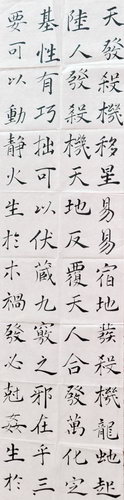 天發殺機移星易易宿地發殺機龍虵起
陸人發殺機天地反覆天人合發萬化定
基性有巧拙可以伏藏九竅之邪在平三
要可以動靜火生於木禍發必尅姦生於